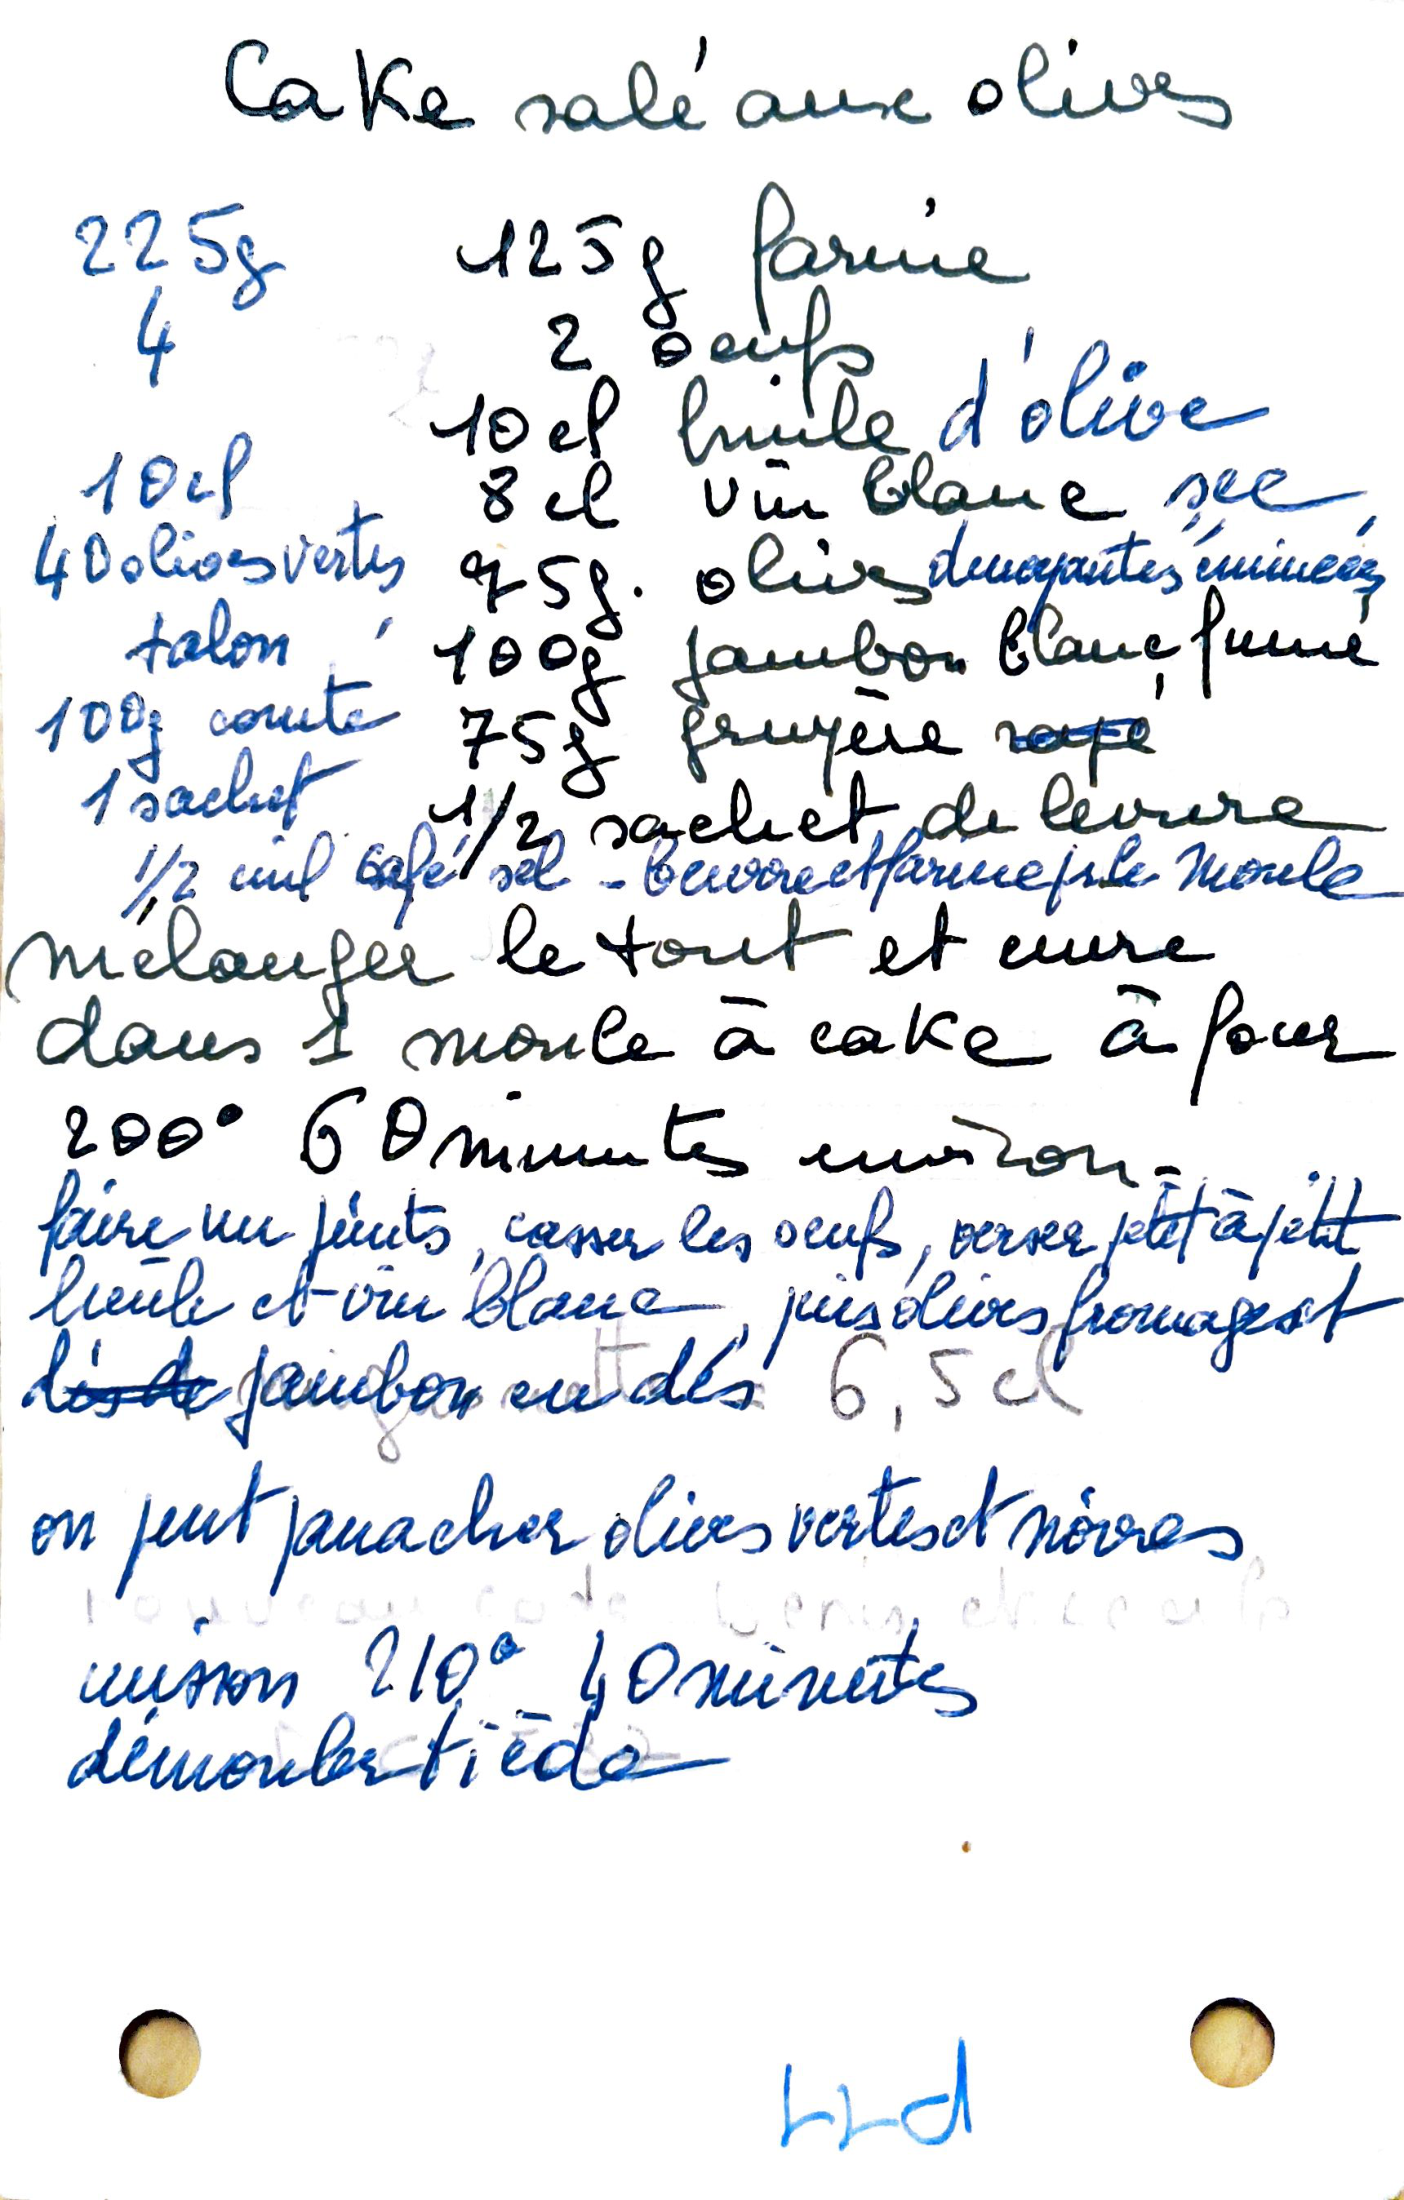 Cake salé aux olives
225g 125g farine
4 2 oeufs
10cl huile d'olive
10cl 8cl vin blanc sec
40 olives vertes 75g. olives dénoyautées émincées
talon 100g jambon blanc, fumé
100g comté 75g gruyère rapé
1 sachet 1/2 sachet de levure
1/2 cuil café sel - beurre et farine pr le moule
mélanger le tout et cuire
dans 1 moule à cake à four
200° 60 minutes environ -
faire un puits, casser les oeufs, verser petit à petit
huile et vin blanc, puis olives fromage et
dés de jambon en dés 6,5 cl
on peut panacher olives vertes et noires
cuisson 210° 40 minutes
démouler tiède
LLd